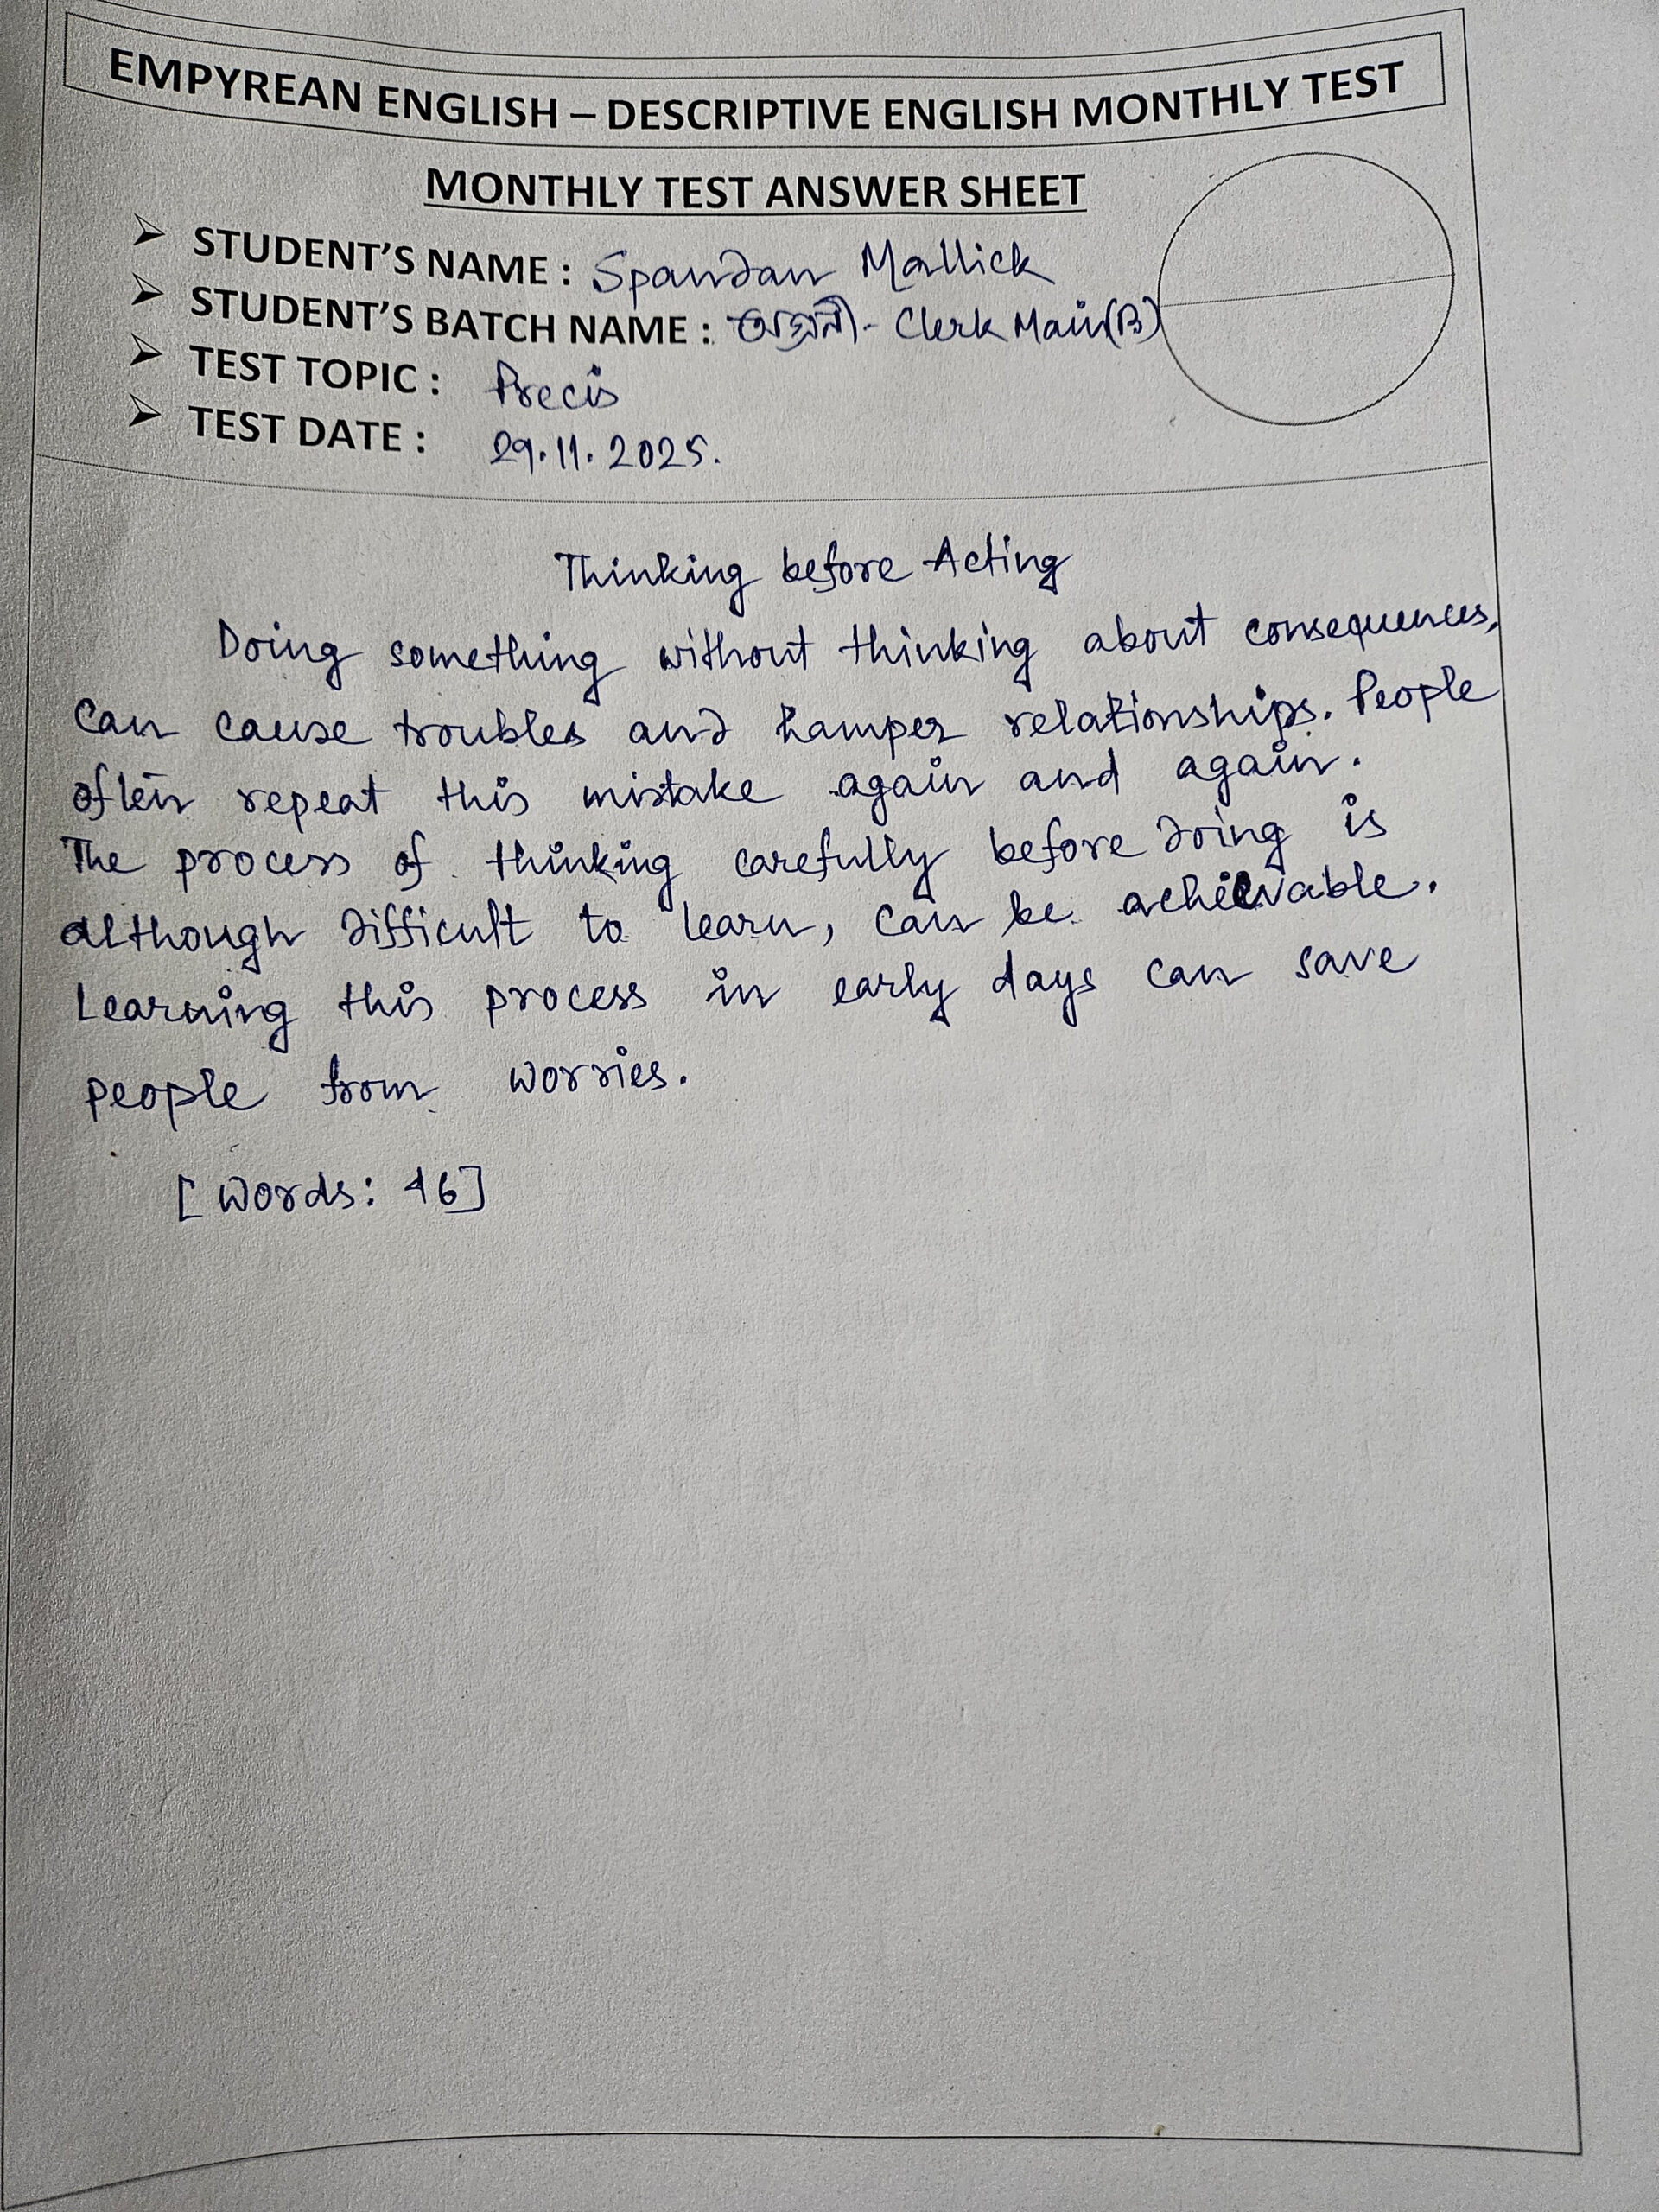 EMPYREAN ENGLISH – DESCRIPTIVE ENGLISH MONTHLY TEST
MONTHLY TEST ANSWER SHEET
➢ STUDENT'S NAME : Spandan Mallick
➢ STUDENT'S BATCH NAME : - Clerk Main(B)
➢ TEST TOPIC : Precis
➢ TEST DATE : 29.11.2025.
Thinking before Acting
Doing something without thinking about consequences,
can cause troubles and hamper relationships. People
often repeat this mistake again and again.
The process of thinking carefully before doing is
although difficult to learn, can be acheivable.
Learning this process in early days can save
people from worries.
[Words: 46]